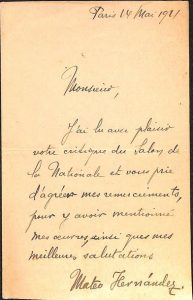 Paris 14 Mai 1921
Monsieur,
J'ai lu avec plaisir
votre critique du Salon de
la Nationale et vous prie
d'agréer mes remerciements,
pour y avoir mentionné
mes œuvres ainsi que mes
meilleures salutations
Mateo Hernández